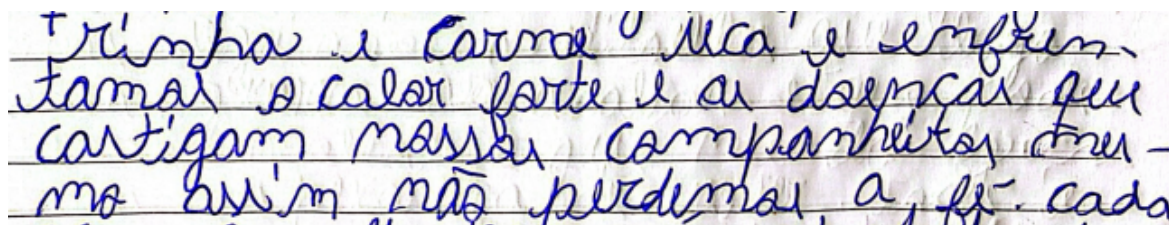 rinha e carne seca e enfren-
tamos o calor forte e as doenças que
castigam nossos companheitos mes-
mo assim não perdemos a fé. cada